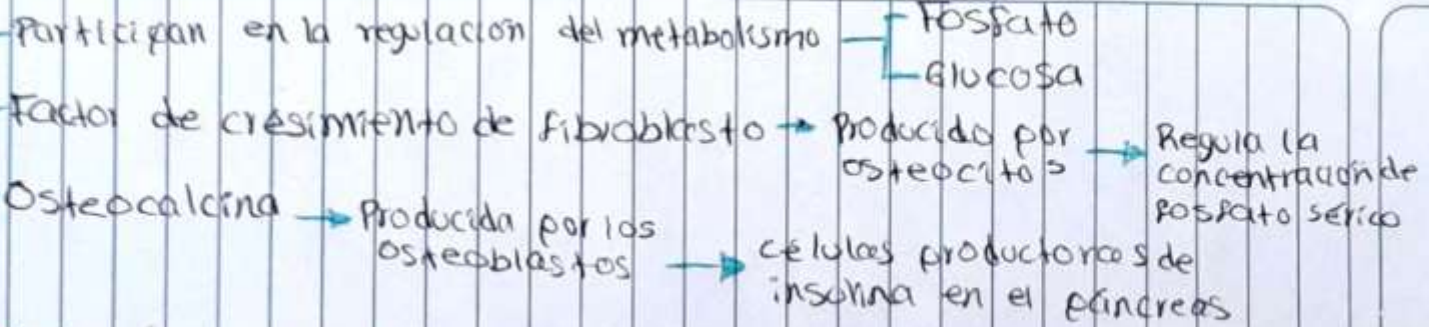 Participan en la regulación del metabolismo
Fosfato
Glucosa
Factor de cresimiento de fibroblasto → Producido por
osteocitos → Regula la
concentración de
fosfato sérico
Osteocalcina → Producida por los
osteoblastos → células productoras de
insulina en el páncreas